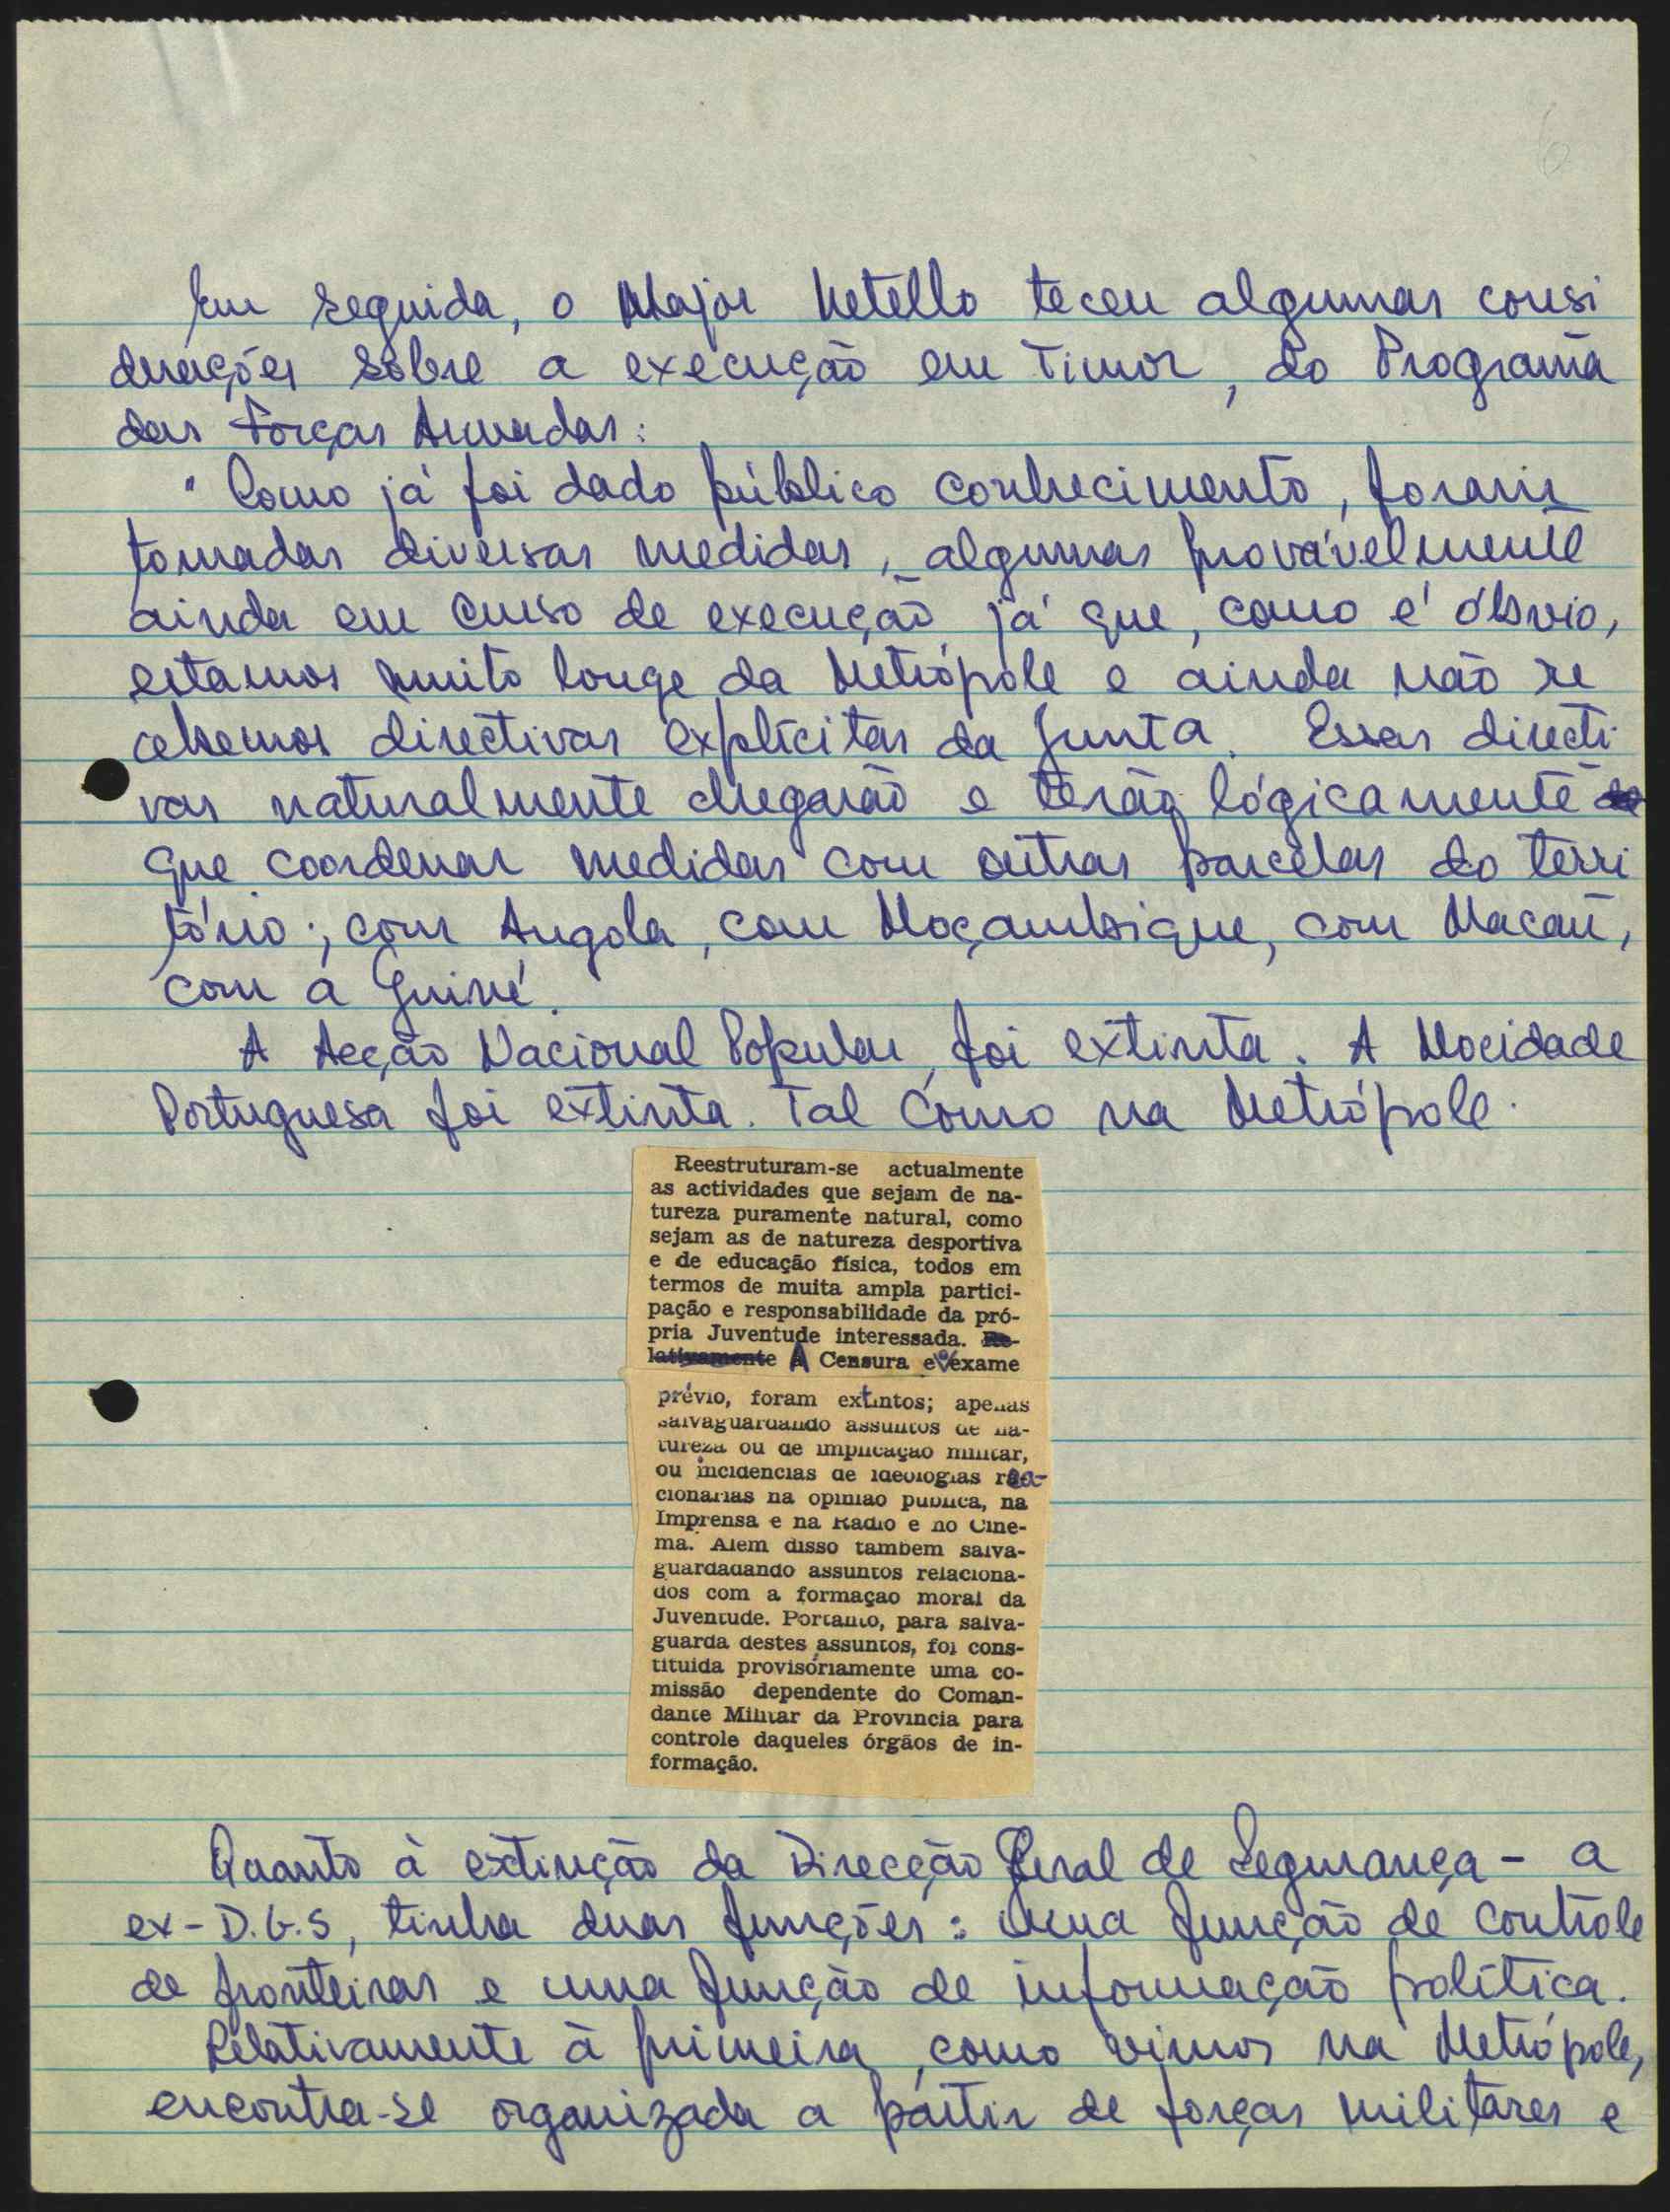 6
Em seguida, o Major Metello teceu algumas consi
derações sobre a execução em Timor, do Programa
das Forças Armadas:
"Como já foi dado público conhecimento, foram
tomadas diversas medidas, algumas provàvelmente
ainda em curso de execução já que, como é óbvio,
estamos muito longe da Metrópole e ainda não re
cebemos directivas explícitas da Junta. Essas directi
vas naturalmente chegarão e terão lògicamente
que coordenar medidas com outras parcelas do terri
tório; com Angola, com Moçambique, com Macau,
com a Guiné.
A Acção Nacional Popular, foi extinta. A Mocidade
Portuguesa foi extinta. Tal como na Metrópole.
Reestruturam-se actualmente
as actividades que sejam de na-
tureza puramente natural, como
sejam as de natureza desportiva
e de educação física, todos em
termos de muita ampla partici-
pação e responsabilidade da pró-
pria Juventude interessada. Re-
lativamente A Censura e o exame
prévio, foram extintos; apenas
salvaguardando assuntos de na-
tureza ou de implicação militar,
ou incidencias de ideologias rea-
cionarias na opinião publica, na
Imprensa e na Radio e no Cine-
ma. Alem disso tambem salva-
guardadando assuntos relaciona-
dos com a formação moral da
Juventude. Portanto, para salva-
guarda destes assuntos, foi cons-
tituida provisòriamente uma co-
missão dependente do Coman-
dante Militar da Provincia para
controle daqueles órgãos de in-
formação.
Quanto à extinção da Direcção Geral de Segurança - a
ex-D.G.S, tinha duas funções: Uma função de controle
de fronteiras e uma função de informação política.
Relativamente à primeira, como vimos na Metrópole,
encontra-se organizada a partir de forças militares e